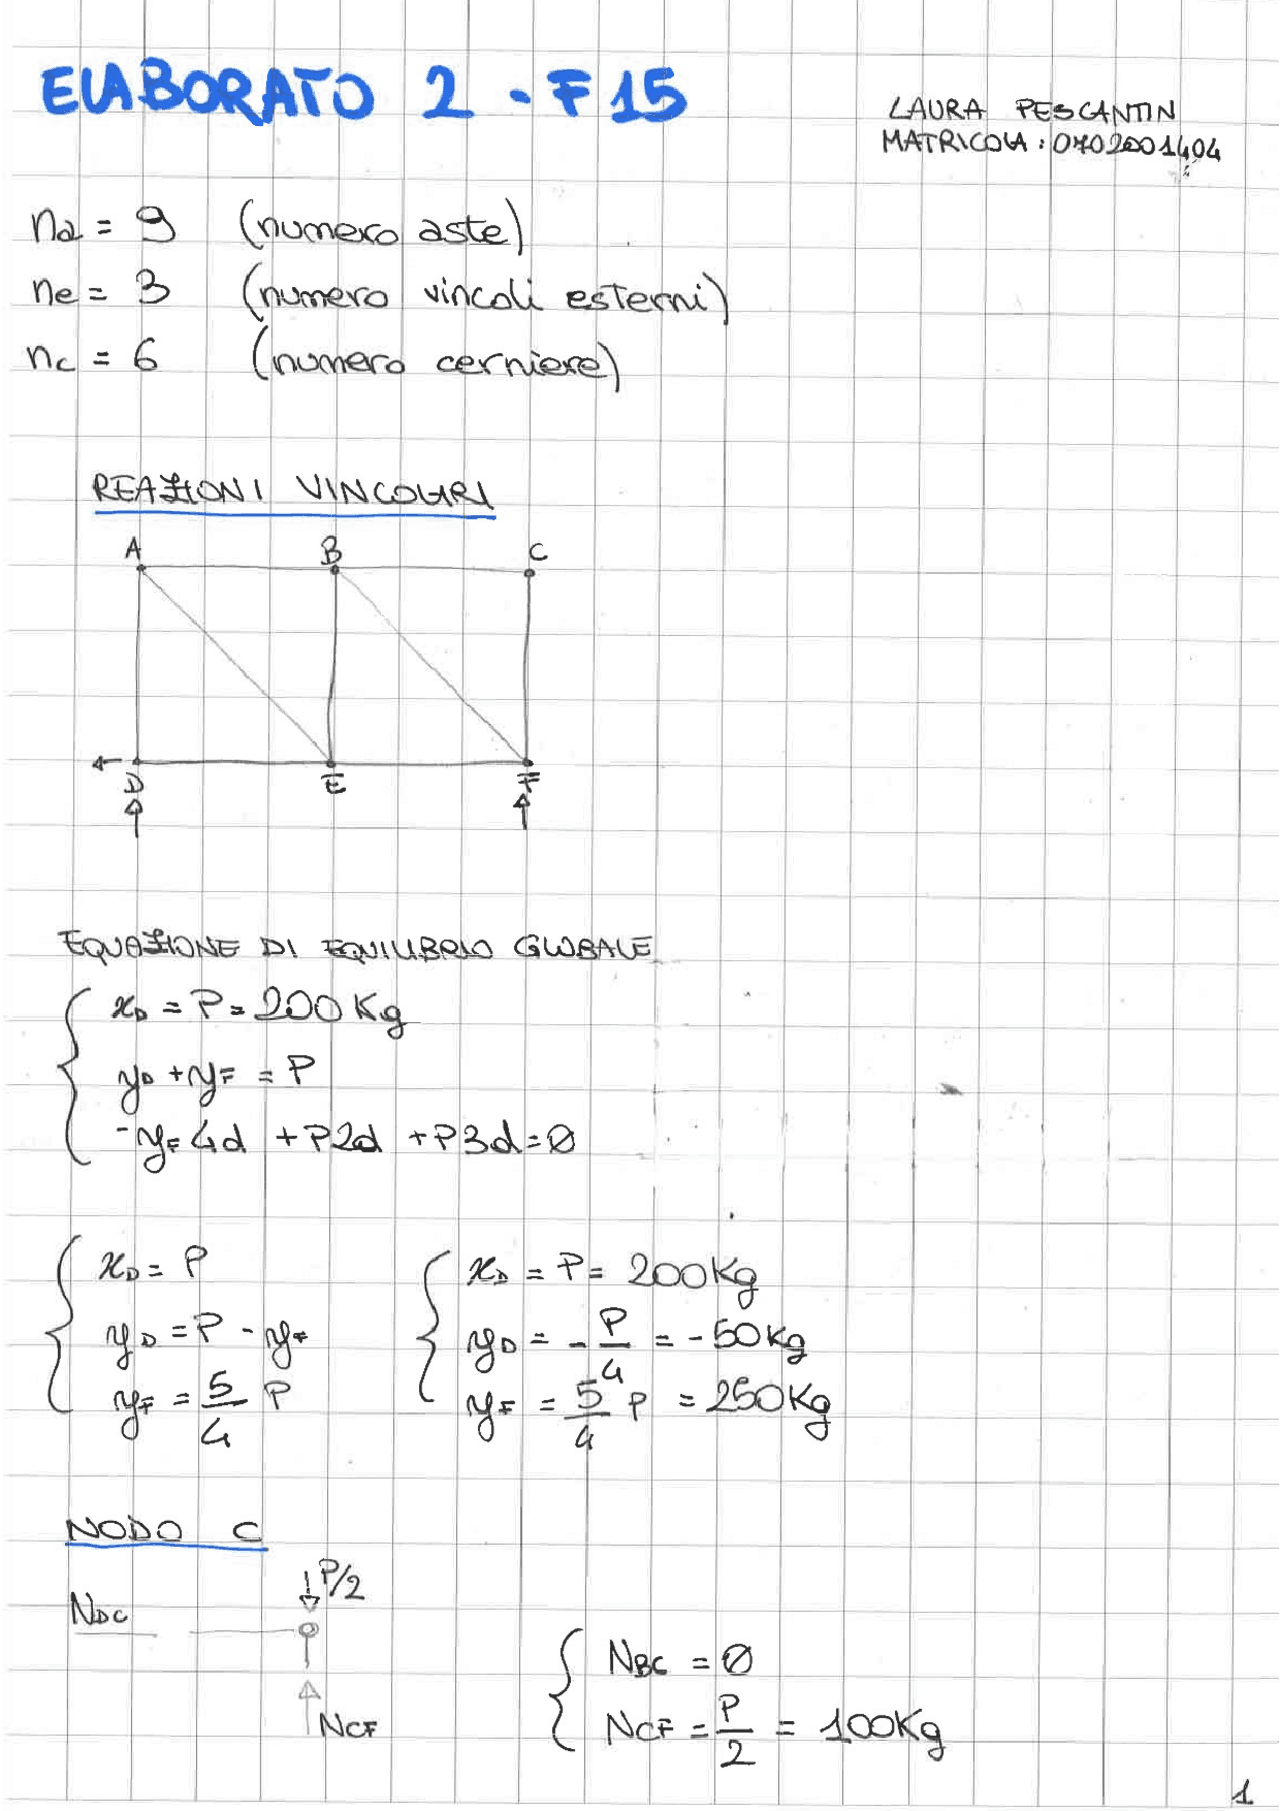 ELABORATO 2 - F15
LAURA PESCANTIN
MATRICOLA: 0702001404
na = 9 (numero aste)
ne = 3 (numero vincoli esterni)
nc = 6 (numero cerniere)
REAZIONI VINCOLARI
A B C
D E F
EQUAZIONE DI EQUILIBRIO GLOBALE
xD = P = 200 Kg
yD + yF = P
-yF 4d + P2d + P3d = 0
xD = P
yD = P - yF
yF = 5/4 P
xD = P = 200Kg
yD = -P/4 = -50kg
yF = 5/4 P = 250Kg
NODO C
P/2
NDC
NCF
NBC = 0
NCF = P/2 = 100Kg
1